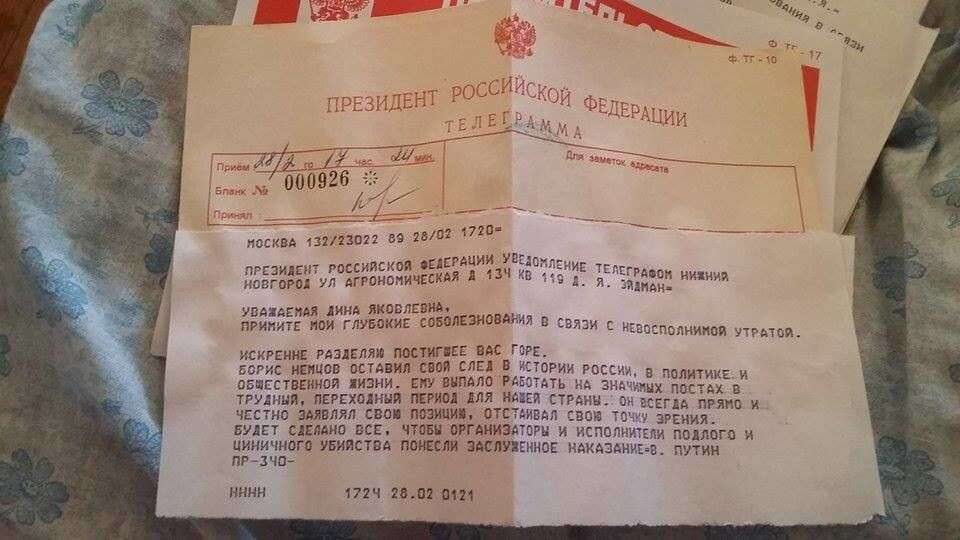 Ф. ТГ - 17
Ф. ТГ - 10
ПРЕЗИДЕНТ РОССИЙСКОЙ ФЕДЕРАЦИИ
ТЕЛЕГРАММА
Приём 28/2 го 17 час. 24 мин.
Бланк № 000926
Принял :
Для заметок адресата
МОСКВА 132/23022 89 28/02 1720=
ПРЕЗИДЕНТ РОССИЙСКОЙ ФЕДЕРАЦИИ УВЕДОМЛЕНИЕ ТЕЛЕГРАФОМ НИЖНИЙ
НОВГОРОД УЛ АГРОНОМИЧЕСКАЯ Д 134 КВ 119 Д. Я. ЭЙДМАН=
УВАЖАЕМАЯ ДИНА ЯКОВЛЕВНА,
ПРИМИТЕ МОИ ГЛУБОКИЕ СОБОЛЕЗНОВАНИЯ В СВЯЗИ С НЕВОСПОЛНИМОЙ УТРАТОЙ.
ИСКРЕННЕ РАЗДЕЛЯЮ ПОСТИГШЕЕ ВАС ГОРЕ.
БОРИС НЕМЦОВ ОСТАВИЛ СВОЙ СЛЕД В ИСТОРИИ РОССИИ, В ПОЛИТИКЕ И
ОБЩЕСТВЕННОЙ ЖИЗНИ. ЕМУ ВЫПАЛО РАБОТАТЬ НА ЗНАЧИМЫХ ПОСТАХ В
ТРУДНЫЙ, ПЕРЕХОДНЫЙ ПЕРИОД ДЛЯ НАШЕЙ СТРАНЫ. ОН ВСЕГДА ПРЯМО И
ЧЕСТНО ЗАЯВЛЯЛ СВОЮ ПОЗИЦИЮ, ОТСТАИВАЛ СВОЮ ТОЧКУ ЗРЕНИЯ.
БУДЕТ СДЕЛАНО ВСЕ, ЧТОБЫ ОРГАНИЗАТОРЫ И ИСПОЛНИТЕЛИ ПОДЛОГО И
ЦИНИЧНОГО УБИЙСТВА ПОНЕСЛИ ЗАСЛУЖЕННОЕ НАКАЗАНИЕ=В. ПУТИН
ПР-340-
НННН 1724 28.02 0121